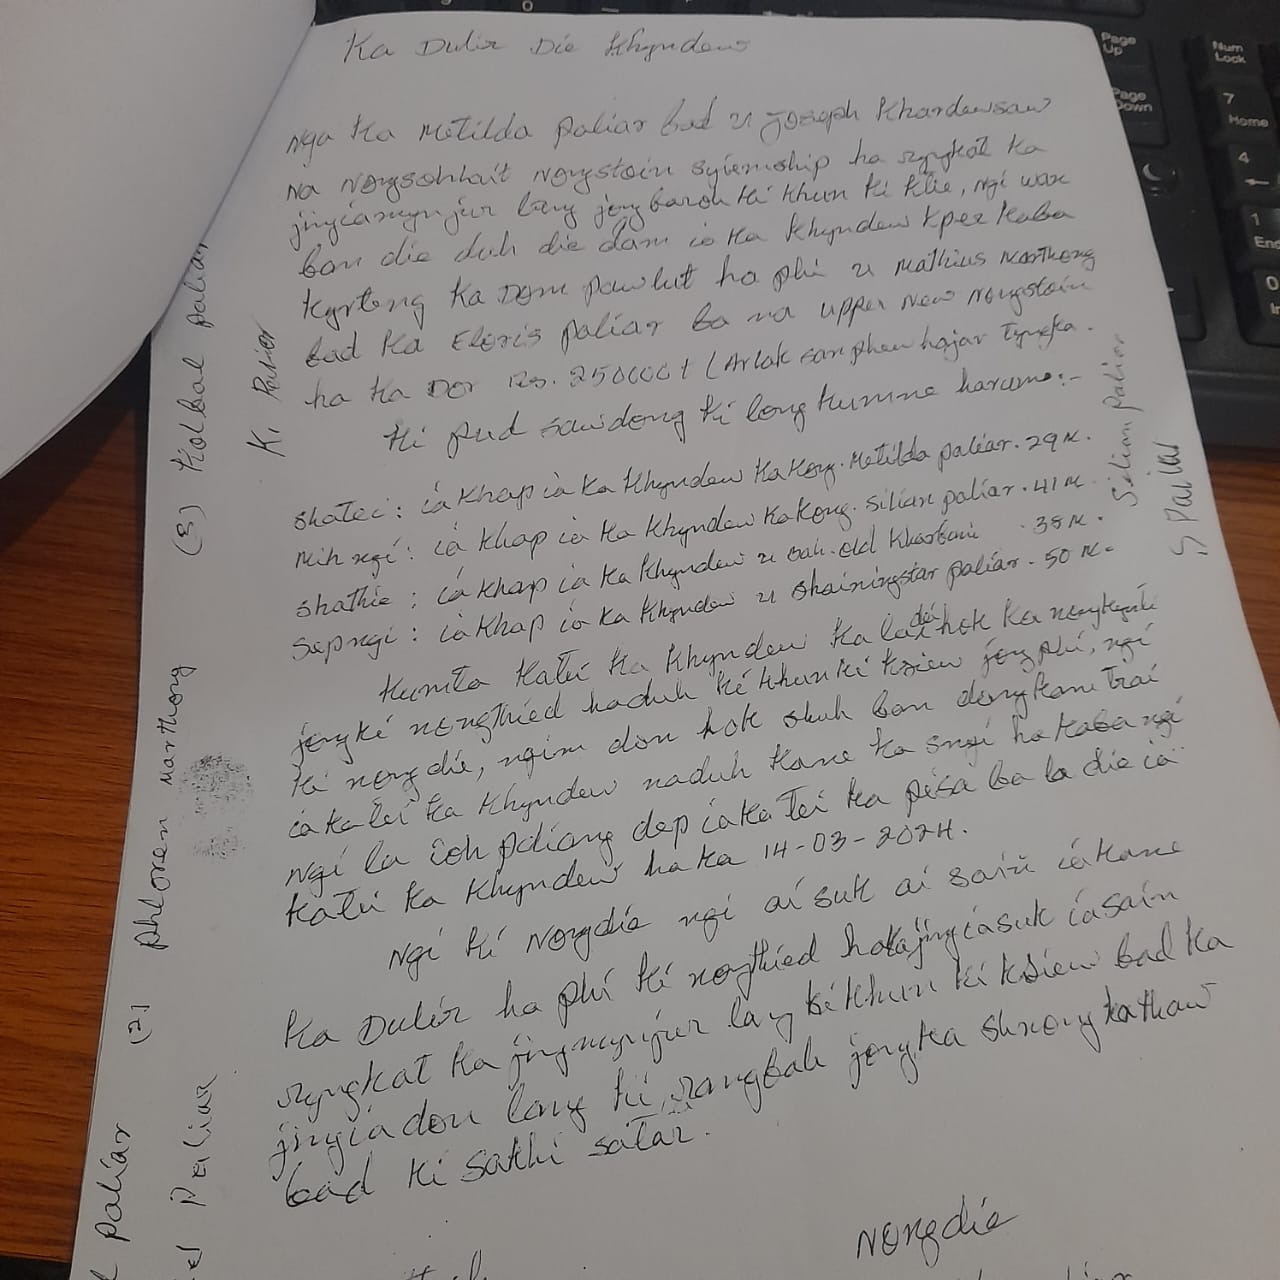 Ka Dulir Die Khyndew
Nga Ka Metilda Paliar bad u Joseph Khardewsaw
na Nongsohlait Nongstoin Syiemship ha ryngkat ka
jingiamynjur lang jong baroh ki khun ki ktie, ngi wan
ban die duh die dam ia ka Khyndew Kper kaba
kyrteng ka Dom Pawlut ha phi u Mathius Marthong
bad ka Eloris Paliar ba na upper New Nongstoin
ha ka Dor Rs. 250000t (Arlak san phew hajar Tyngka.
Ki pud sawdong ki long kumne harum:-
Shatei: ia khap ia ka Khyndew ka kong. Metilda Paliar. 29 M.
Mih ngi: ia khap ia ka Khyndew ka kong. Silian paliar. 41 M.
Shathie: ia khap ia ka Khyndew u bah. Old Kharbani . 38 M.
Sepngi: ia khap ia ka Khyndew u Shainingstar paliar. 50 M.
Kumta katei ka Khyndew ka la dei hok ka nongkynti
jong ki nongthied haduh ki khun ki ksiew jong phi, ngi
ki nongdie, ngim don hok shuh ban dong kam trai
ia katei ka Khyndew naduh kane ka sngi ha kaba ngi
ngi la ioh pdiang dep ia katei ka pisa ba la die ia
katei ka Khyndew ha ka 14-03-2024.
Ngi ki Nongdie ngi ai suk ai sain ia kane
ka Dulir ha phi ki nongthied ha ka jingiasuk iasain
ryngkat ka jingmynjur lang ki khun ki ksiew bad ka
jingiadon lang ki rangbah jong ka shnong kathaw
bad ki sakhi satar.
Nongdie
K. Paliar
(3) Kolbal paliar
(2) Phloren Marthong
paliar
Paliar
Silian Paliar
S Paliar